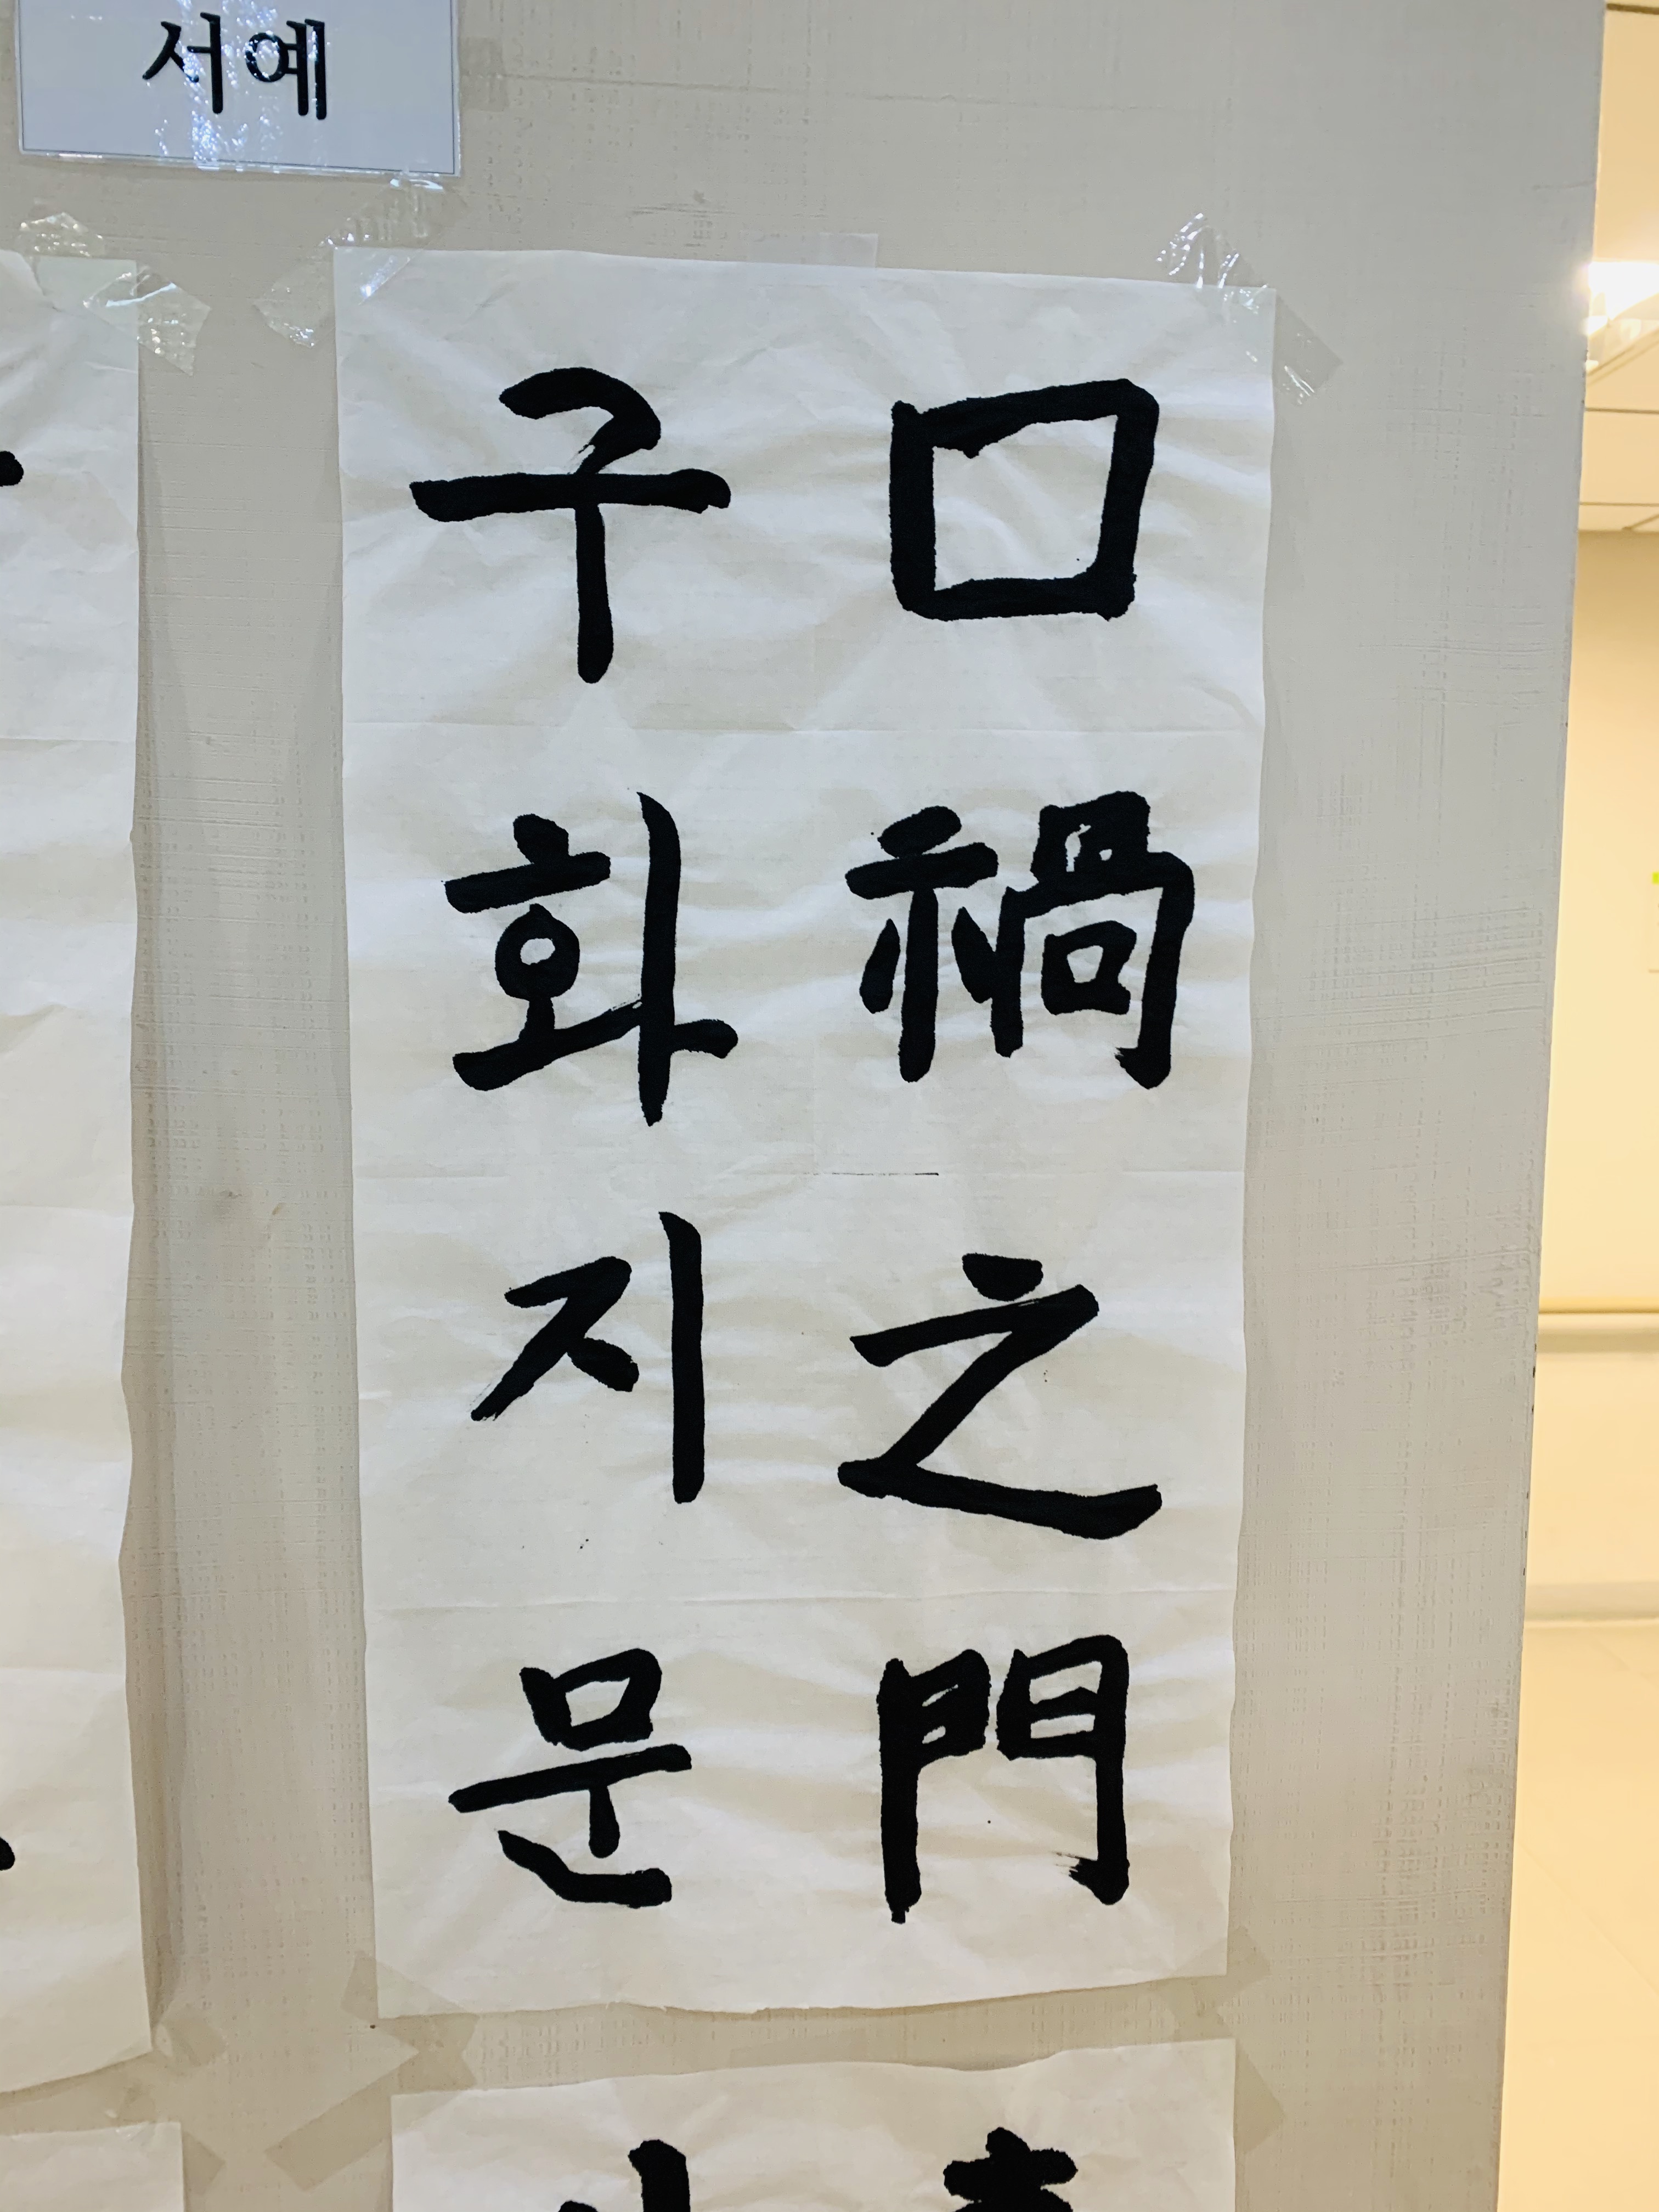 서예
口禍之門
구화지문